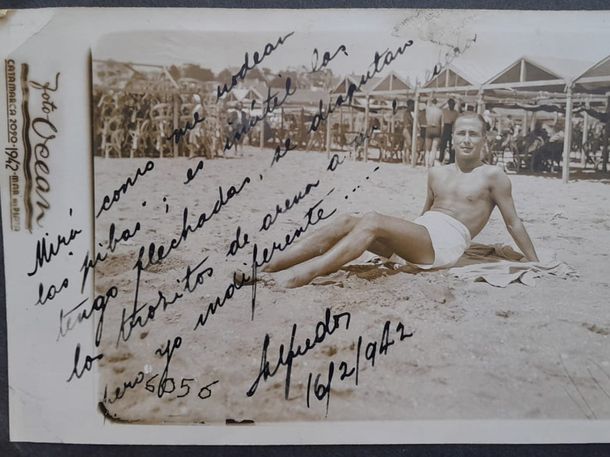 Foto Ocean
CATAMARCA 2090-1942-MAR DEL PLATA
Mirá como me rodean
las pibas; es inútil, las
tengo flechadas, se disputan
los trositos de arena a mi
pero yo indiferente....
Alfredo
16/2/942